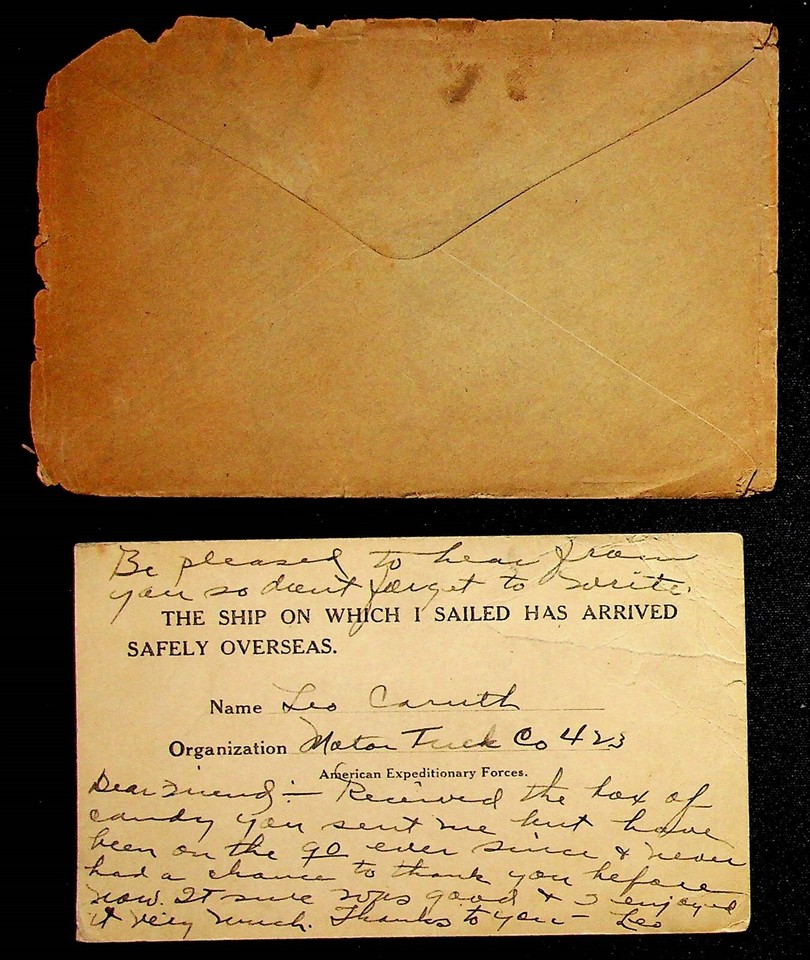 Be pleased to hear from
you so dont forget to write.
THE SHIP ON WHICH I SAILED HAS ARRIVED
SAFELY OVERSEAS.
Name Leo Caruth
Organization Motor Truck Co 423
American Expeditionary Forces.
Dear Friend:— Received the box of
candy you sent me but have
been on the go ever since & never
had a chance to thank you before
now. It sure was good & I enjoyed
it very much. Thanks to you — Leo